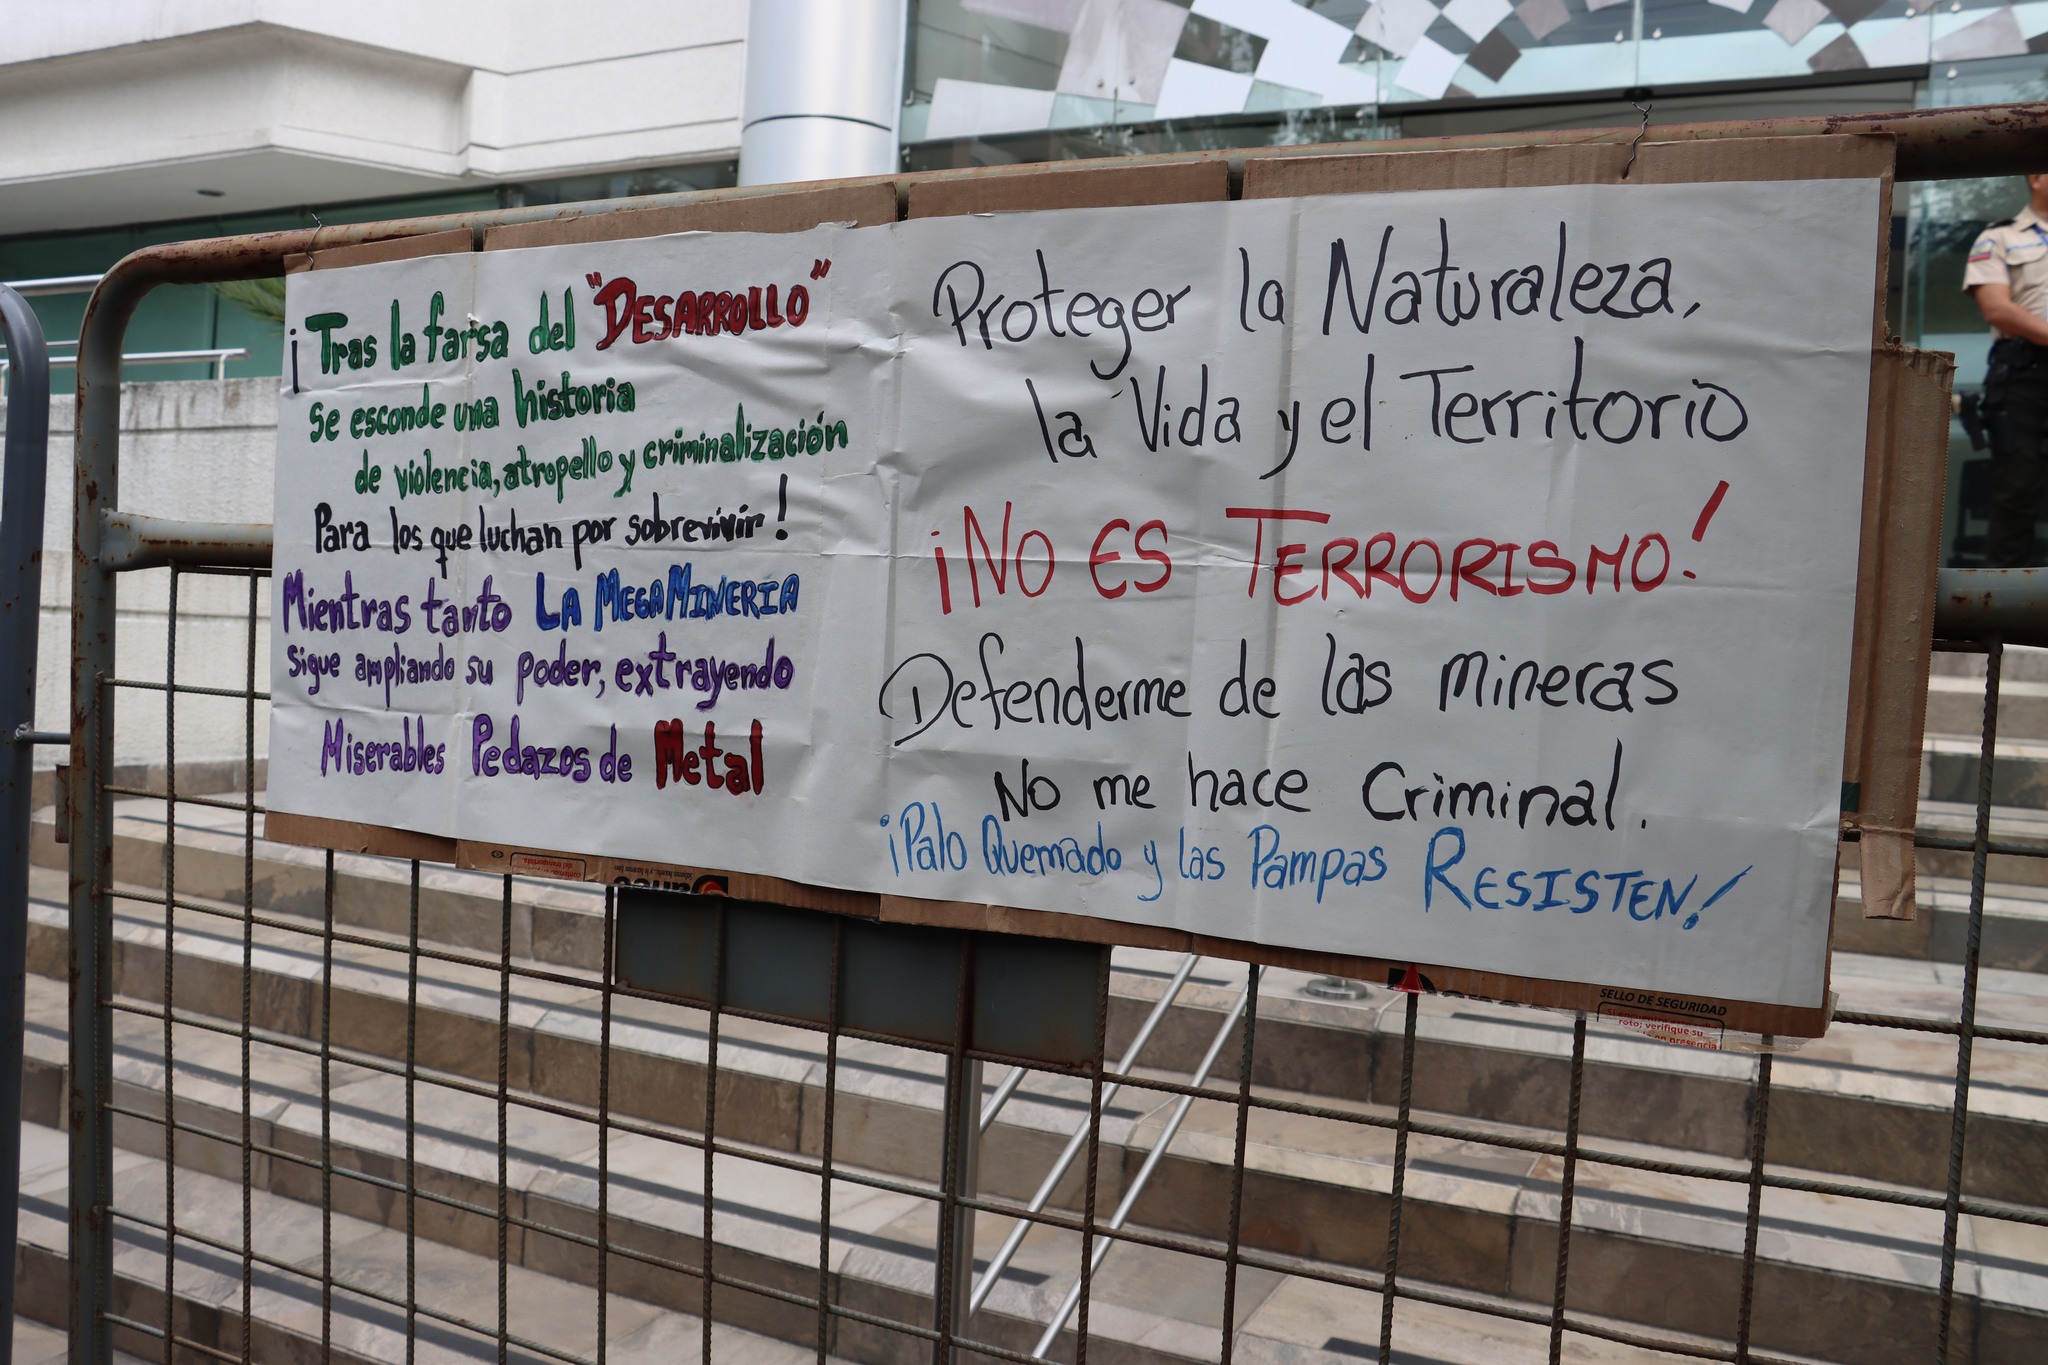 ¡Tras la farsa del "DESARROLLO"
se esconde una historia
de violencia, atropello y criminalización
Para los que luchan por sobrevivir!
Mientras tanto LA MEGAMINERIA
sigue ampliando su poder, extrayendo
Miserables Pedazos de Metal
Proteger la Naturaleza,
la Vida y el Territorio
¡NO ES TERRORISMO!
Defenderme de las mineras
No me hace Criminal.
¡Palo Quemado y las Pampas RESISTEN!
SELLO DE SEGURIDAD
roto; verifique su